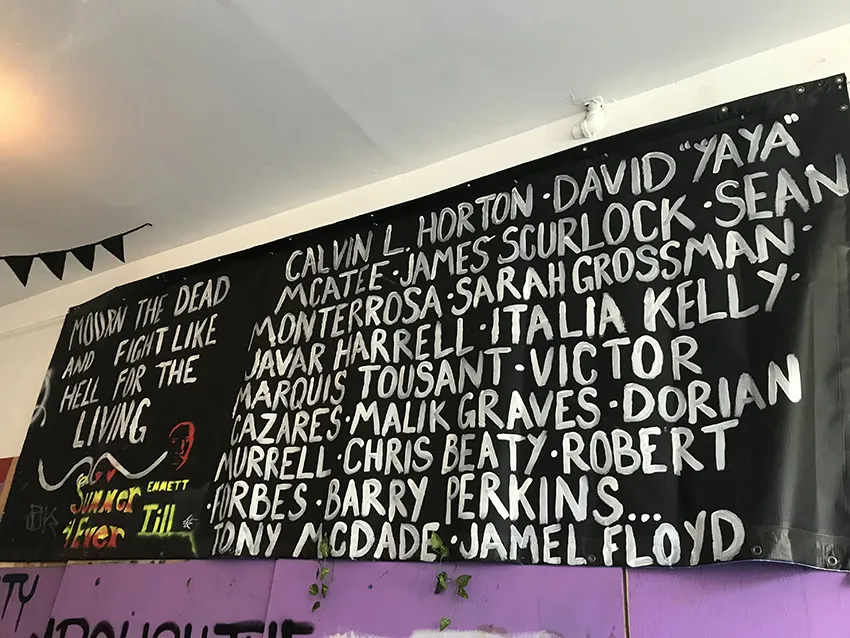 MOURN THE DEAD
AND FIGHT LIKE
HELL FOR THE
LIVING
Summer
4 Ever
EMMETT
Till
CALVIN L. HORTON · DAVID "YAYA"
MCATEE · JAMES SCURLOCK · SEAN
MONTERROSA · SARAH GROSSMAN ·
JAVAR HARRELL · ITALIA KELLY ·
MARQUIS TOUSANT · VICTOR
CAZARES · MALIK GRAVES · DORIAN
MURRELL · CHRIS BEATY · ROBERT
FORBES · BARRY PERKINS...
TONY MCDADE · JAMEL FLOYD
TY